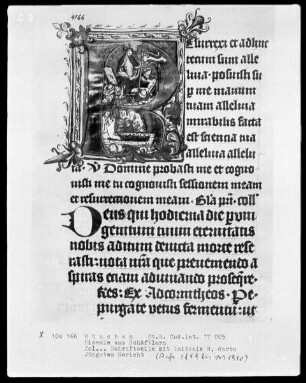 4166
Resurrexi et adhuc
tecum sum alle
luia posuisti su
per me manum
tuam alleluia
mirabilis facta
est sciencia tua
alleluia allelu
ia. V Domine probasti me et cogno
uisti me tu cognouisti sessionem meam
et resurrectionem meam. Gla pri. coll
Deus qui hodierna die p vni
genitum tuum eternitatis
nobis aditum deuicta morte rese
rasti: uota nra que preueniendo a
spiras eciam adiuuando proseqre
kes: Ex Ad corintheos: Re-
purgate vetus fermentum: ut
X 104 166 München St.B. Cod.lat. 17 005
Missale aus Schäftlarn
Fol... Schriftseite mit Initiale R, darin
Jüngstes Gericht